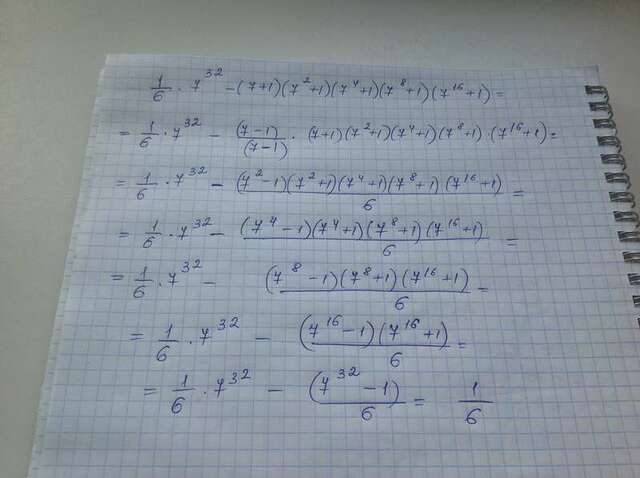 1/6 · 7^32 - (7+1)(7^2+1)(7^4+1)(7^8+1)(7^16+1) =
= 1/6 · 7^32 - (7-1)/(7-1) · (7+1)(7^2+1)(7^4+1)(7^8+1) · (7^16+1) =
= 1/6 · 7^32 - (7^2-1)(7^2+1)(7^4+1)(7^8+1) · (7^16+1)/6 =
= 1/6 · 7^32 - (7^4-1)(7^4+1)(7^8+1)(7^16+1)/6 =
= 1/6 · 7^32 - (7^8-1)(7^8+1)(7^16+1)/6 =
= 1/6 · 7^32 - (7^16-1)(7^16+1)/6 =
= 1/6 · 7^32 - (7^32-1)/6 = 1/6